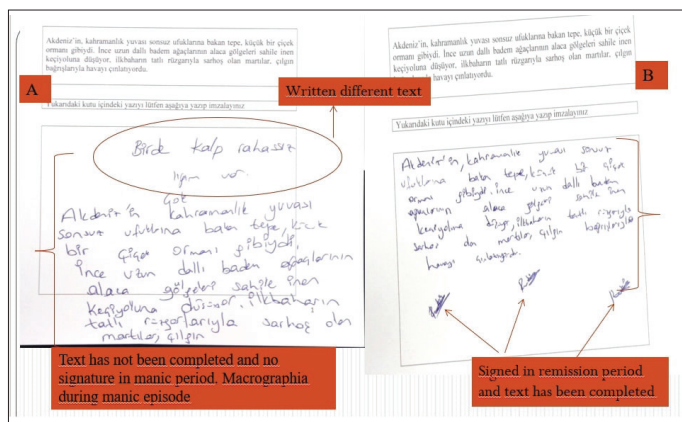 Akdeniz'in, kahramanlık yuvası sonsuz ufuklarına bakan tepe, küçük bir çiçek
ormanı gibiydi. İnce uzun dallı badem ağaçlarının alaca gölgeleri sahile inen
keçiyoluna düşüyor, ilkbaharın tatlı rüzgarıyla sarhoş olan martılar, çılgın
bağrışlarıyla havayı çınlatıyordu.
A
Yukarıdaki kutu içindeki yazıyı lütfen aşağıya yazıp imzalayınız
Written different text
Birde kalp rahatsız
lığım var.
Akdeniz'in kahramanlık yuvası
sonsuz ufuklarına bakan tepe, küçük
bir çiçek ormanı gibiydi,
İnce uzun dallı badem ağaçlarının
alaca gölgeleri sahile inen
keçiyoluna düşüyor. ilkbaharın
tatlı rüzgarlarıyla sarhoş olan
martılar, çılgın
Text has not been completed and no
signature in manic period. Macrographia
during manic episode
Akdeniz'in, kahramanlık yuvası sonsuz ufuklarına bakan tepe, küçük bir çiçek
ormanı gibiydi. İnce uzun dallı badem ağaçlarının alaca gölgeleri sahile inen
keçiyoluna düşüyor, ilkbaharın tatlı rüzgarıyla sarhoş olan martılar, çılgın
havayı çınlatıyordu.
B
Yukarıdaki kutu içindeki yazıyı lütfen aşağıya yazıp imzalayınız
Akdeniz'in, kahramanlık yuvası sonsuz
ufuklarına bakan tepe, küçük bir çiçek
ormanı gibiydi. İnce uzun dallı badem
ağaçlarının alaca gölgeleri sahile inen
keçiyoluna ilkbaharın tatlı rüzgarıyla
sarhoş olan martılar, çılgın bağrışlarıyla
havayı çınlatıyordu.
Signed in remission period
and text has been completed